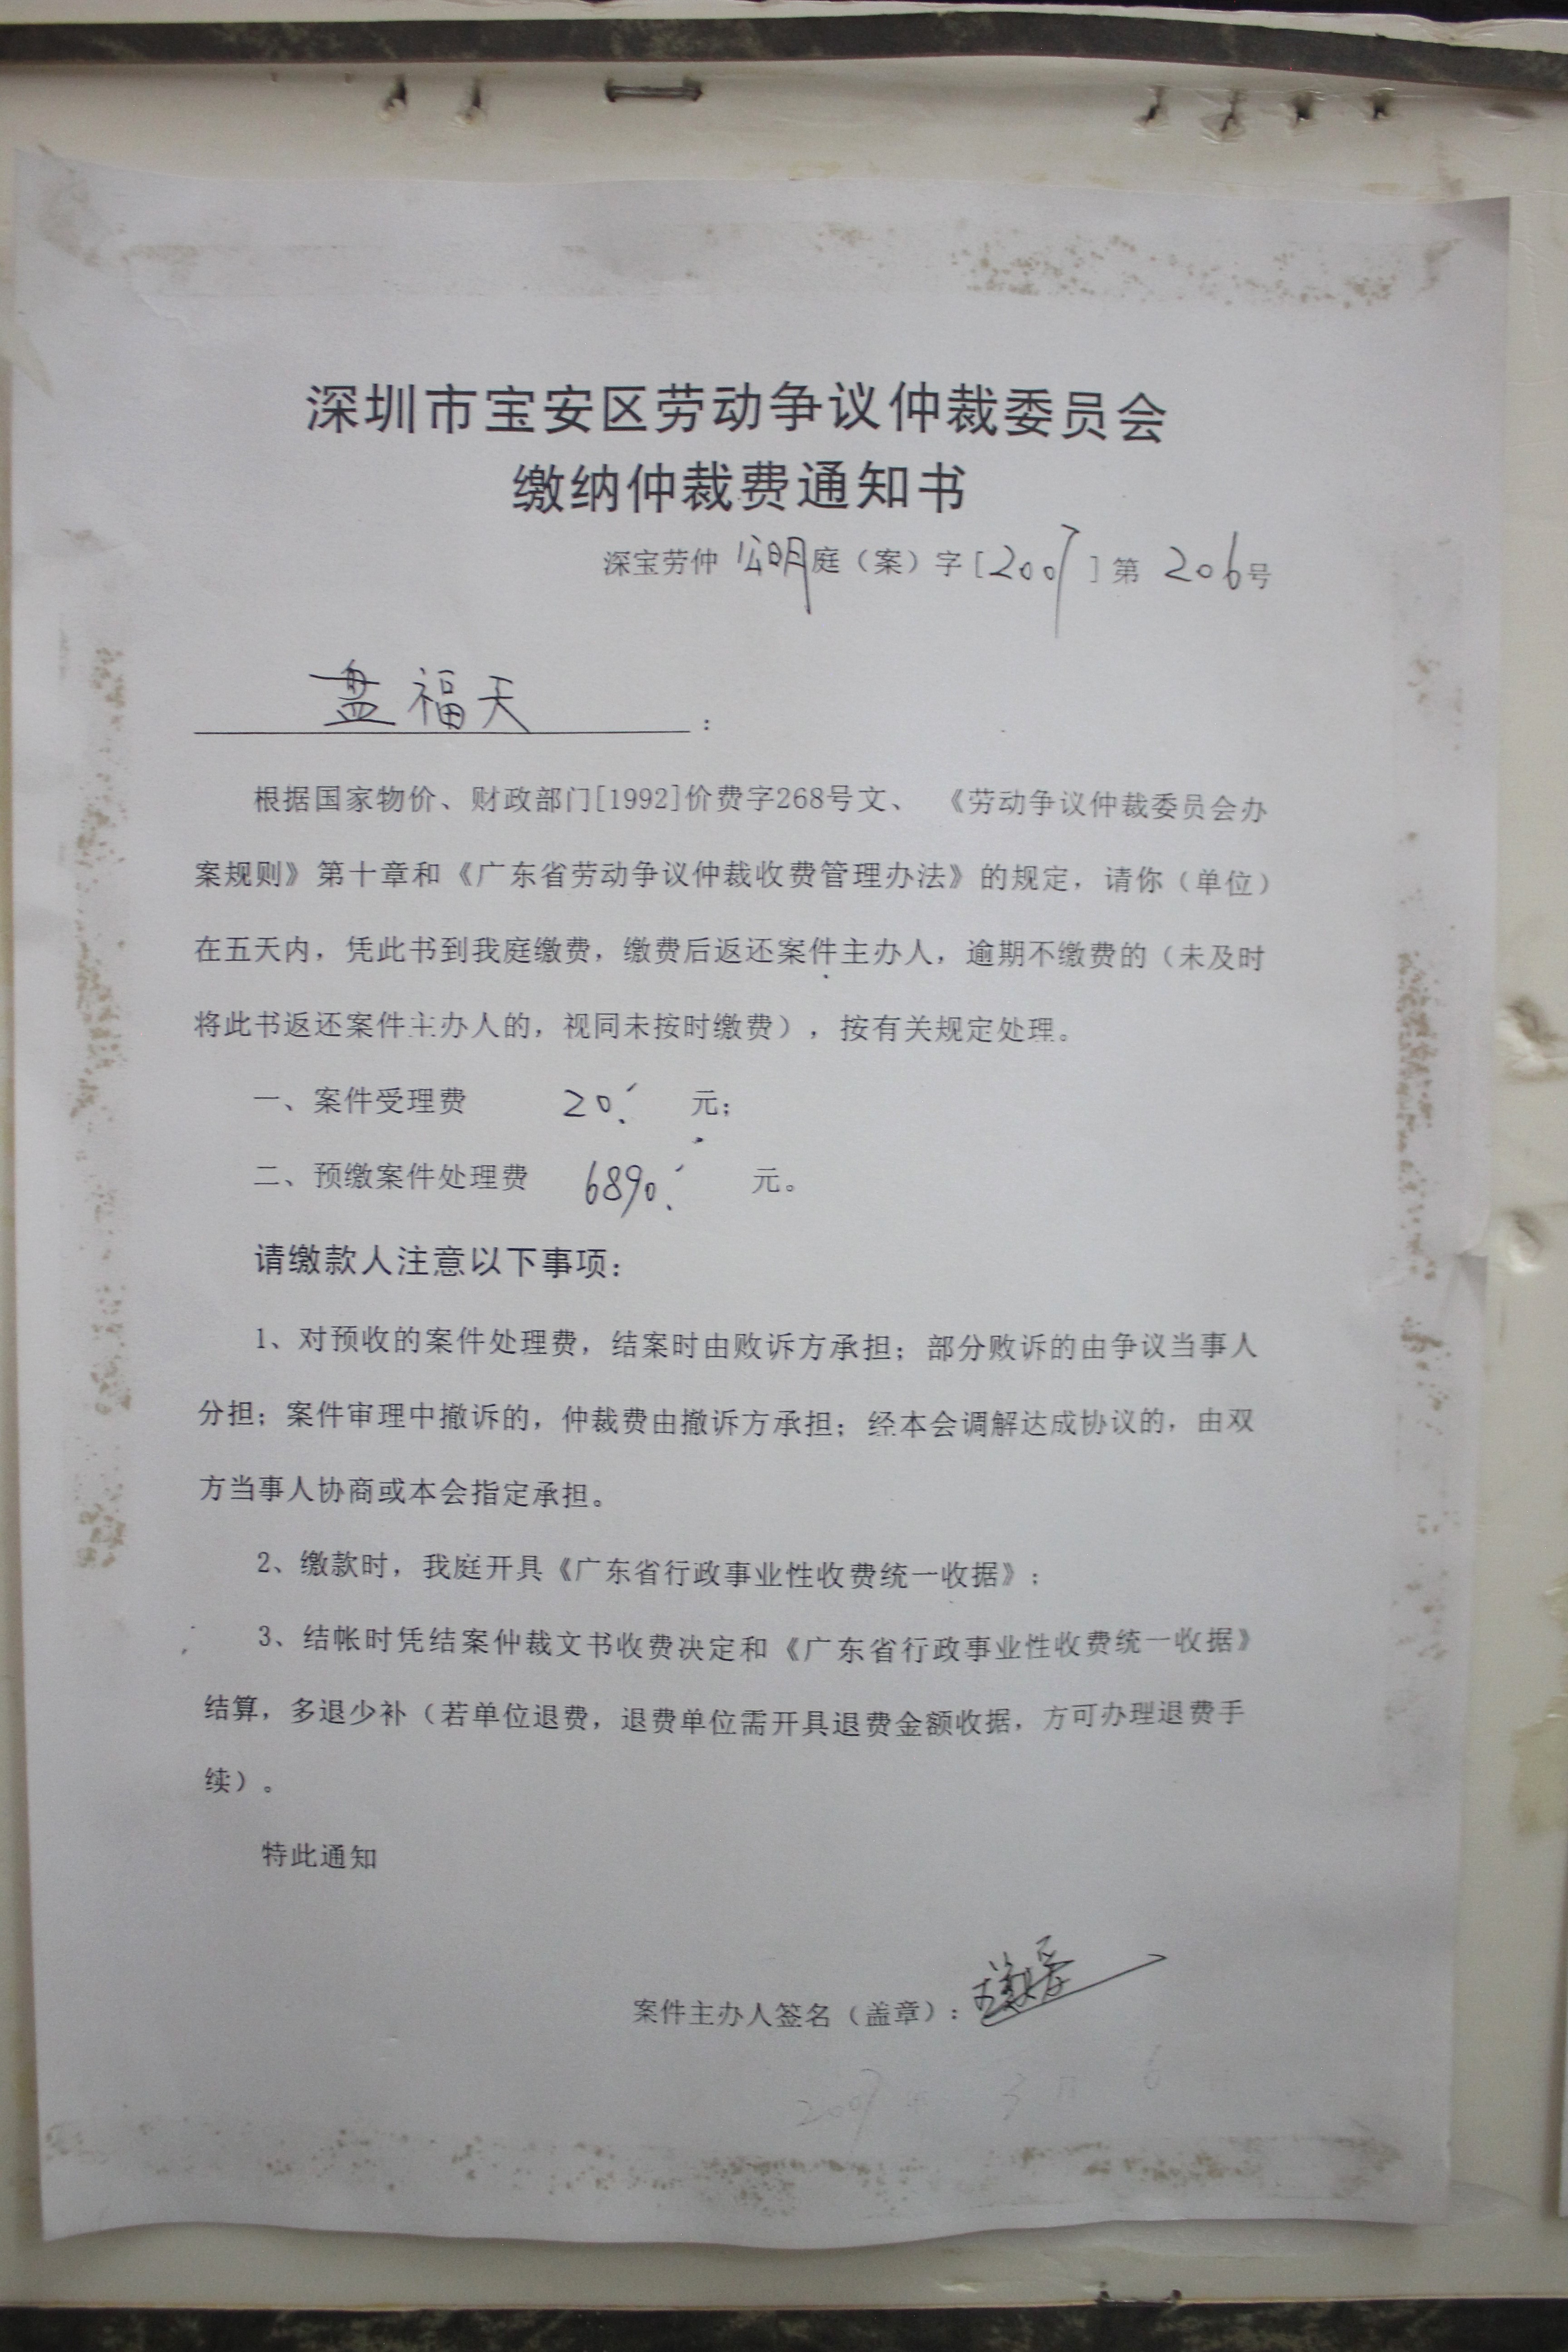 深圳市宝安区劳动争议仲裁委员会
缴纳仲裁费通知书
深宝劳仲公明庭（案）字[2007]第206号
盘福天：
根据国家物价、财政部门[1992]价费字268号文、《劳动争议仲裁委员会办
案规则》第十章和《广东省劳动争议仲裁收费管理办法》的规定，请你（单位）
在五天内，凭此书到我庭缴费，缴费后返还案件主办人，逾期不缴费的（未及时
将此书返还案件主办人的，视同未按时缴费），按有关规定处理。
一、案件受理费 20. 元；
二、预缴案件处理费 6890. 元。
请缴款人注意以下事项：
1、对预收的案件处理费，结案时由败诉方承担；部分败诉的由争议当事人
分担；案件审理中撤诉的，仲裁费由撤诉方承担；经本会调解达成协议的，由双
方当事人协商或本会指定承担。
2、缴款时，我庭开具《广东省行政事业性收费统一收据》；
3、结帐时凭结案仲裁文书收费决定和《广东省行政事业性收费统一收据》
结算，多退少补（若单位退费，退费单位需开具退费金额收据，方可办理退费手
续）。
特此通知
案件主办人签名（盖章）：
2007年3月6